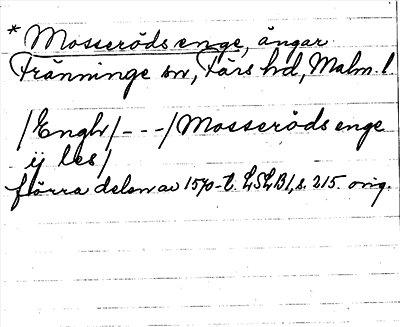 * Mosseröds enge, ängar
Tränninge sn, Färs hd, Malm. l.
/Engh/ - - - / Mosseröds enge
ij les/
förra delen av 1570-t. LSLB1, s. 215. orig.